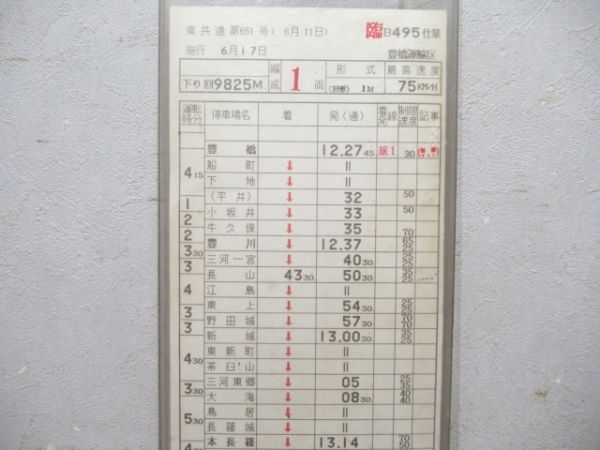 東共達第651号(6月11日) 臨B495仕業
施行 6月17日 豊橋運輸区
下り 回9825M 編成 1 両 形式 (旧形) 1M 最高速度 75KM/H
運転時分 停車場名 着 発(通) 着発線 制限速度 記事
豊橋 ↓ 12.27 45 旅1 30
4 15 船町 ↓ 〃
下地 ↓ 〃
(平井) ↓ 32 50
1 小坂井 ↓ 33 50
2 牛久保 ↓ 35 70
2 豊川 ↓ 12.37 65 25
3 30 三河一宮 ↓ 40 30 25
3 長山 43 30 50 30 35 25
4 江島 ↓ 〃
3 東上 ↓ 54 30 25
3 野田城 ↓ 57 30 70
新城 ↓ 13.00 30 35 25
4 30 東新町 ↓ 〃
茶臼山 ↓ 〃
3 30 三河東郷 ↓ 05 35
大海 ↓ 08 30 40 40
5 30 鳥居 ↓ 〃
長篠城 ↓ 〃
本長篠 ↓ 13.14 70